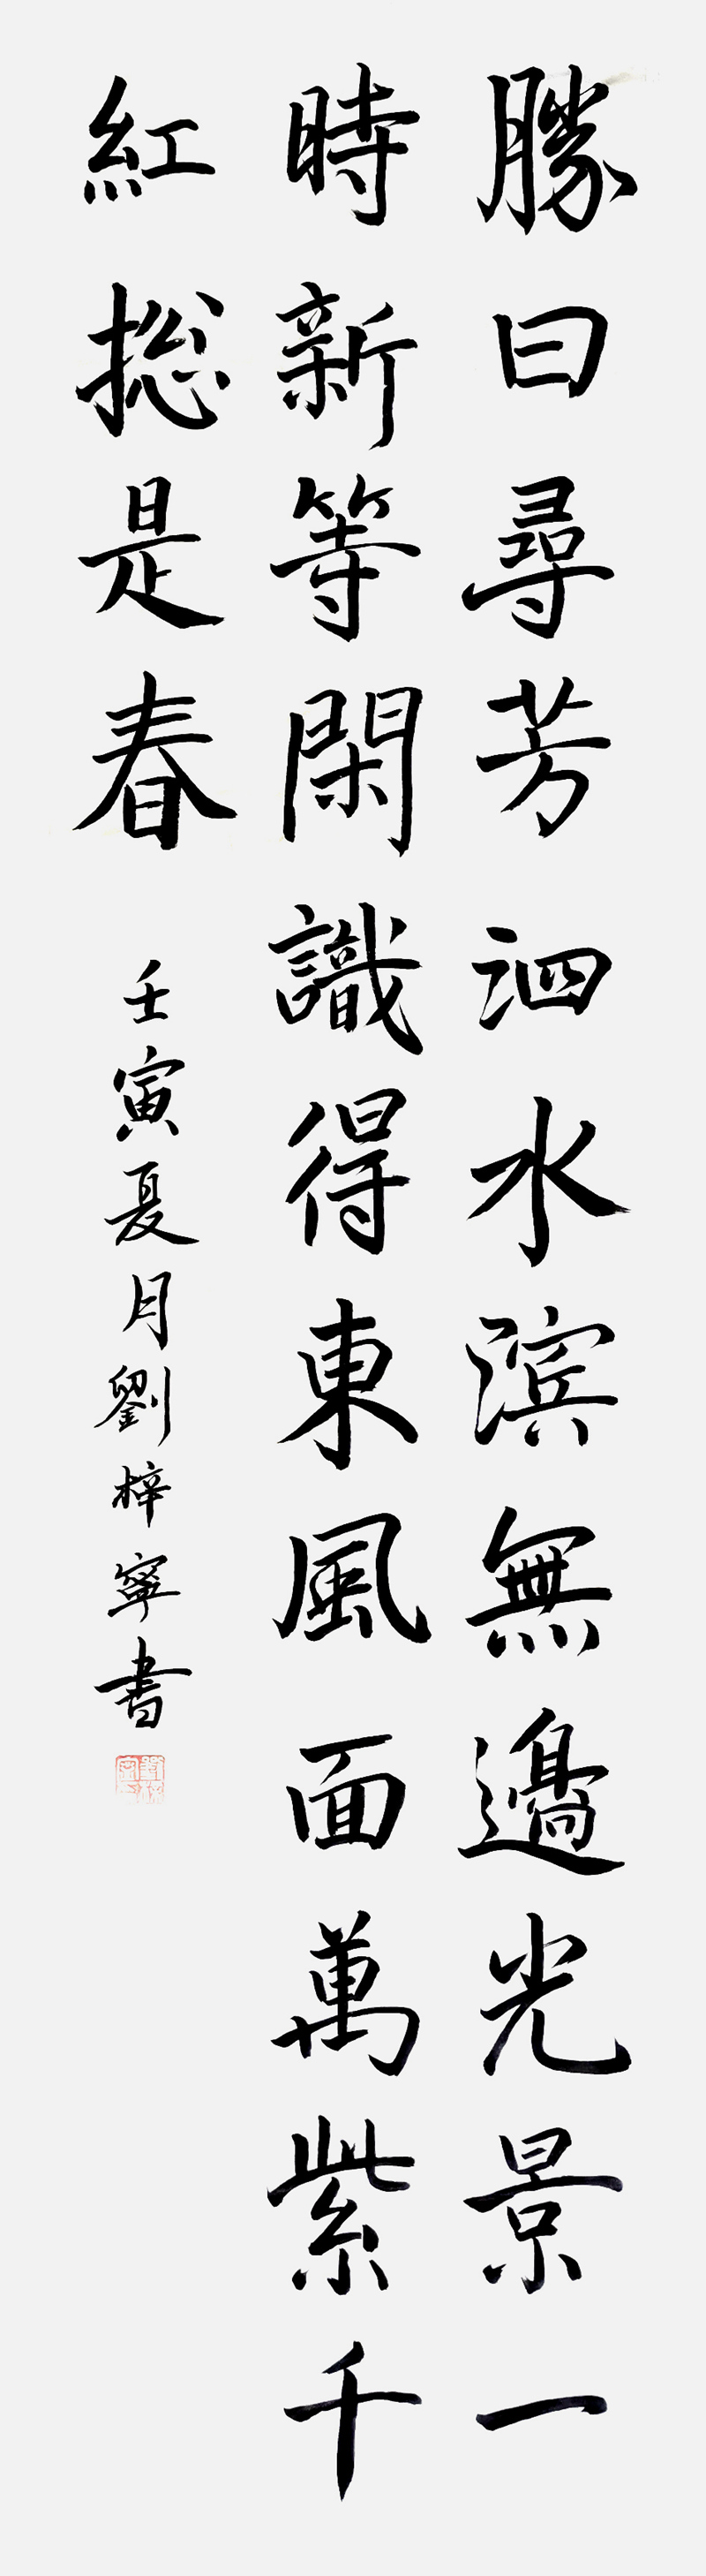 勝日尋芳泗水滨無邊光景一
時新等閑識得東風面萬紫千
紅捴是春
壬寅夏月劉梓寧書